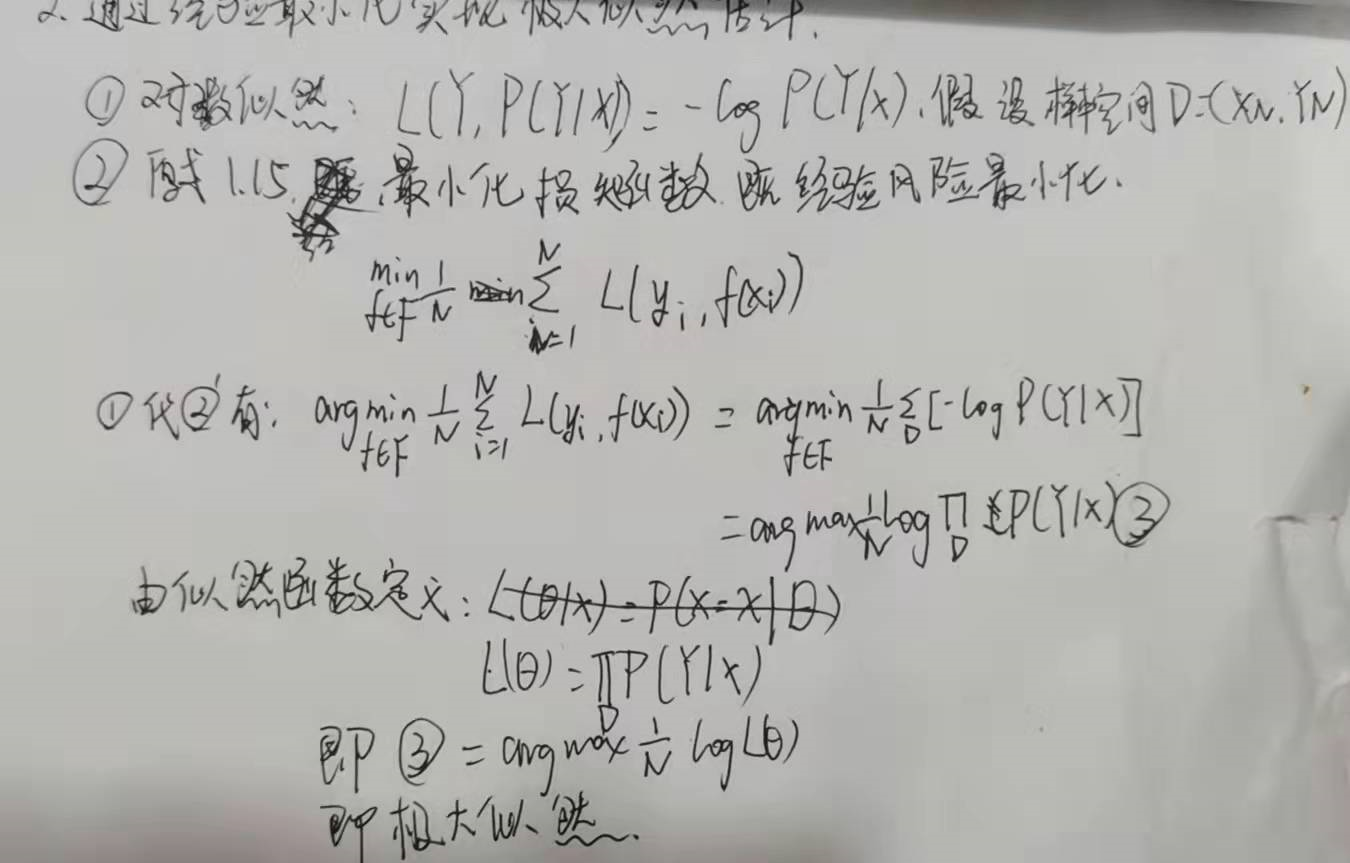 2. 通过经验最小化实现极大似然估计.
① 对数似然: L(Y, P(Y|X)) = -log P(Y|X). 假设样空间 D=(XN, YN)
② 式 1.15, 最小化损失函数. 既经验风险最小化.
min f∈F 1/N N∑i=1 L(yi, f(xi))
① 代 ② 有: argmin f∈F 1/N N∑i=1 L(yi, f(xi)) = argmin f∈F 1/N ∑D [-log P(Y|X)]
= arg max 1/N log ∏D P(Y|X) ③
由似然函数定义: L(θ|x) = P(X=x|θ)
L(θ) = ∏D P(Y|X)
即 ③ = arg max 1/N log L(θ)
即极大似然.